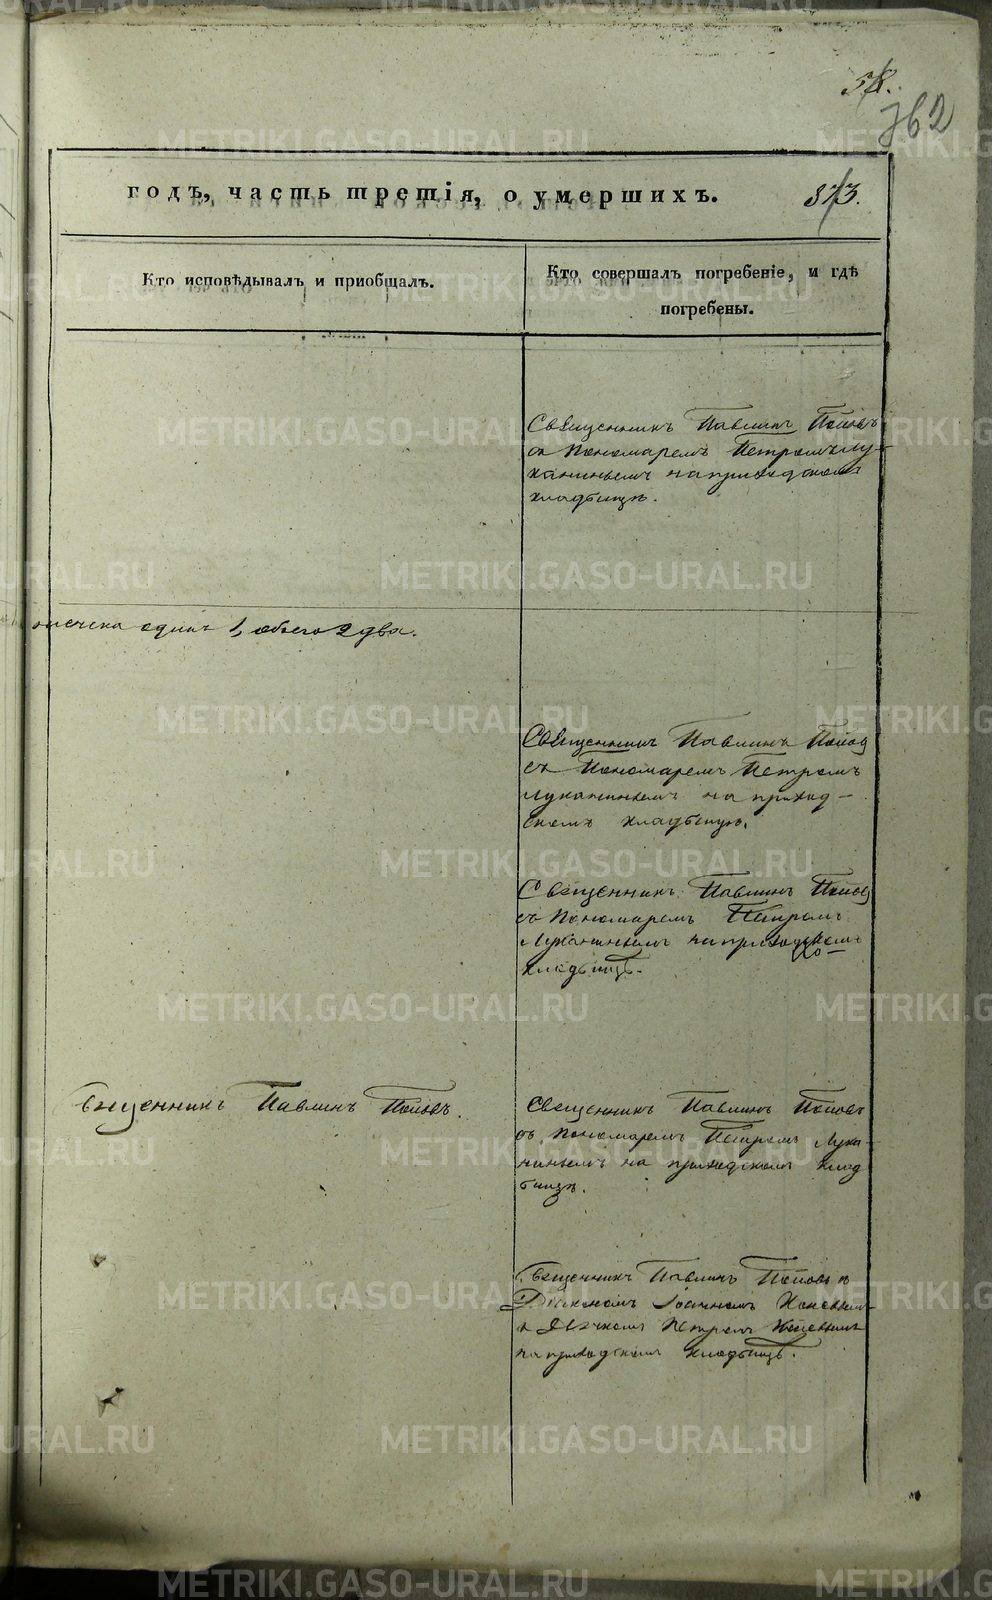 58.
762
годъ, часть третія, о умершихъ.
873.
Кто исповѣдывалъ и приобщалъ.
Кто совершалъ погребеніе, и гдѣ
погребены.
Священникъ Павлинъ Поповъ
съ Пономаремъ Петромъ Лу-
канинымъ на приходскомъ
кладбищѣ.
одинъ 1, обоего 2 два.
Священникъ Павлинъ Попов
съ Пономаремъ Петромъ
Луканинымъ на приход-
скомъ кладбищѣ.
Священникъ Павлинъ Попов
съ Пономаремъ Петромъ
Луканинымъ на приходскомъ
кладбищѣ.
Священникъ Павлинъ Поповъ.
Священникъ Павлинъ Поповъ
съ Пономаремъ Петромъ Лука-
нинымъ на приходскомъ клад
бищѣ.
Священникъ Павлинъ Поповъ съ
Діакономъ Іоанномъ
и Дьячкомъ Петромъ
на приходскомъ кладбищѣ.
METRIKI.GASO-URAL.RU